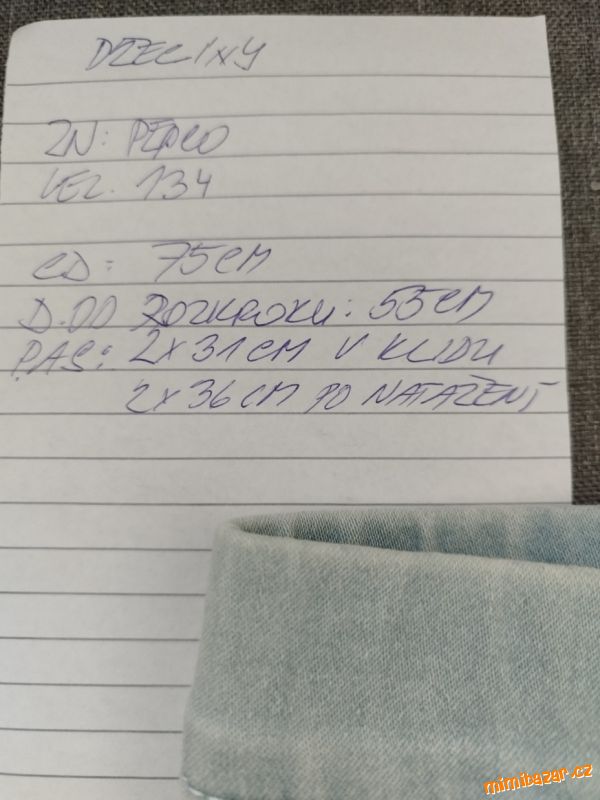 DŽEGINY
ZN: PEPCO
VEL. 134
CD: 75CM
D.OD ROZKROKU: 55CM
PAS: 2X31CM V KLIDU
2X36CM PO NATAŽENÍ
mimibazar.cz